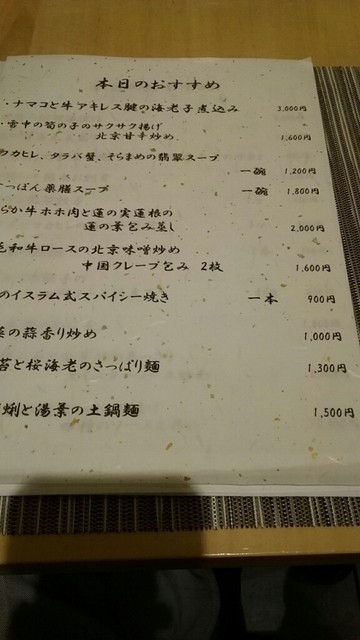 本日のおすすめ
・ナマコと牛アキレス腱の海老子煮込み 3,000円
・雪中の筍の子のサクサク揚げ
北京甘辛炒め 1,600円
フカヒレ、タラバ蟹、そらまめの翡翠スープ
一碗 1,200円
すっぽん薬膳スープ 一碗 1,800円
らか牛ホホ肉と蓮の実蓮根の
蓮の葉包み蒸し 2,000円
毛和牛ロースの北京味噌炒め
中国クレープ包み 2枚 1,600円
のイスラム式スパイシー焼き 一本 900円
の蒜香り炒め 1,000円
苔と桜海老のさっぱり麺 1,300円
蜊と湯葉の土鍋麺 1,500円